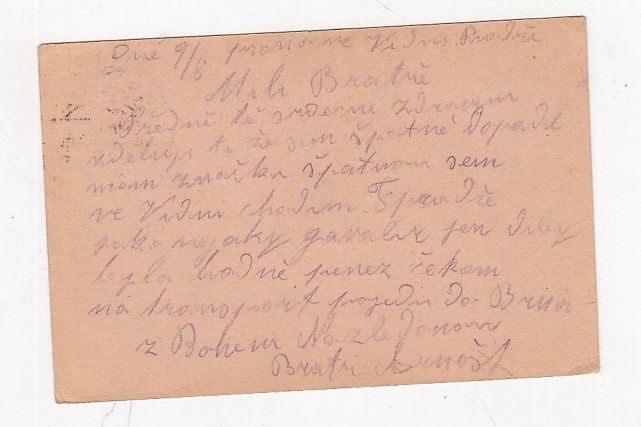 Dné 9/8 ve Vidni
Milí Bratře
Předně tě srdečne zdravim
zdeluji ti že sem špatně dopadl
mam značku špatnou sem
ve Vidni chodim
jako nejaky gavalir jen diby
byla hodně penez čekam
na transport pojedu do Brna
z Bohem Nazledanou
Bratr Arnošt